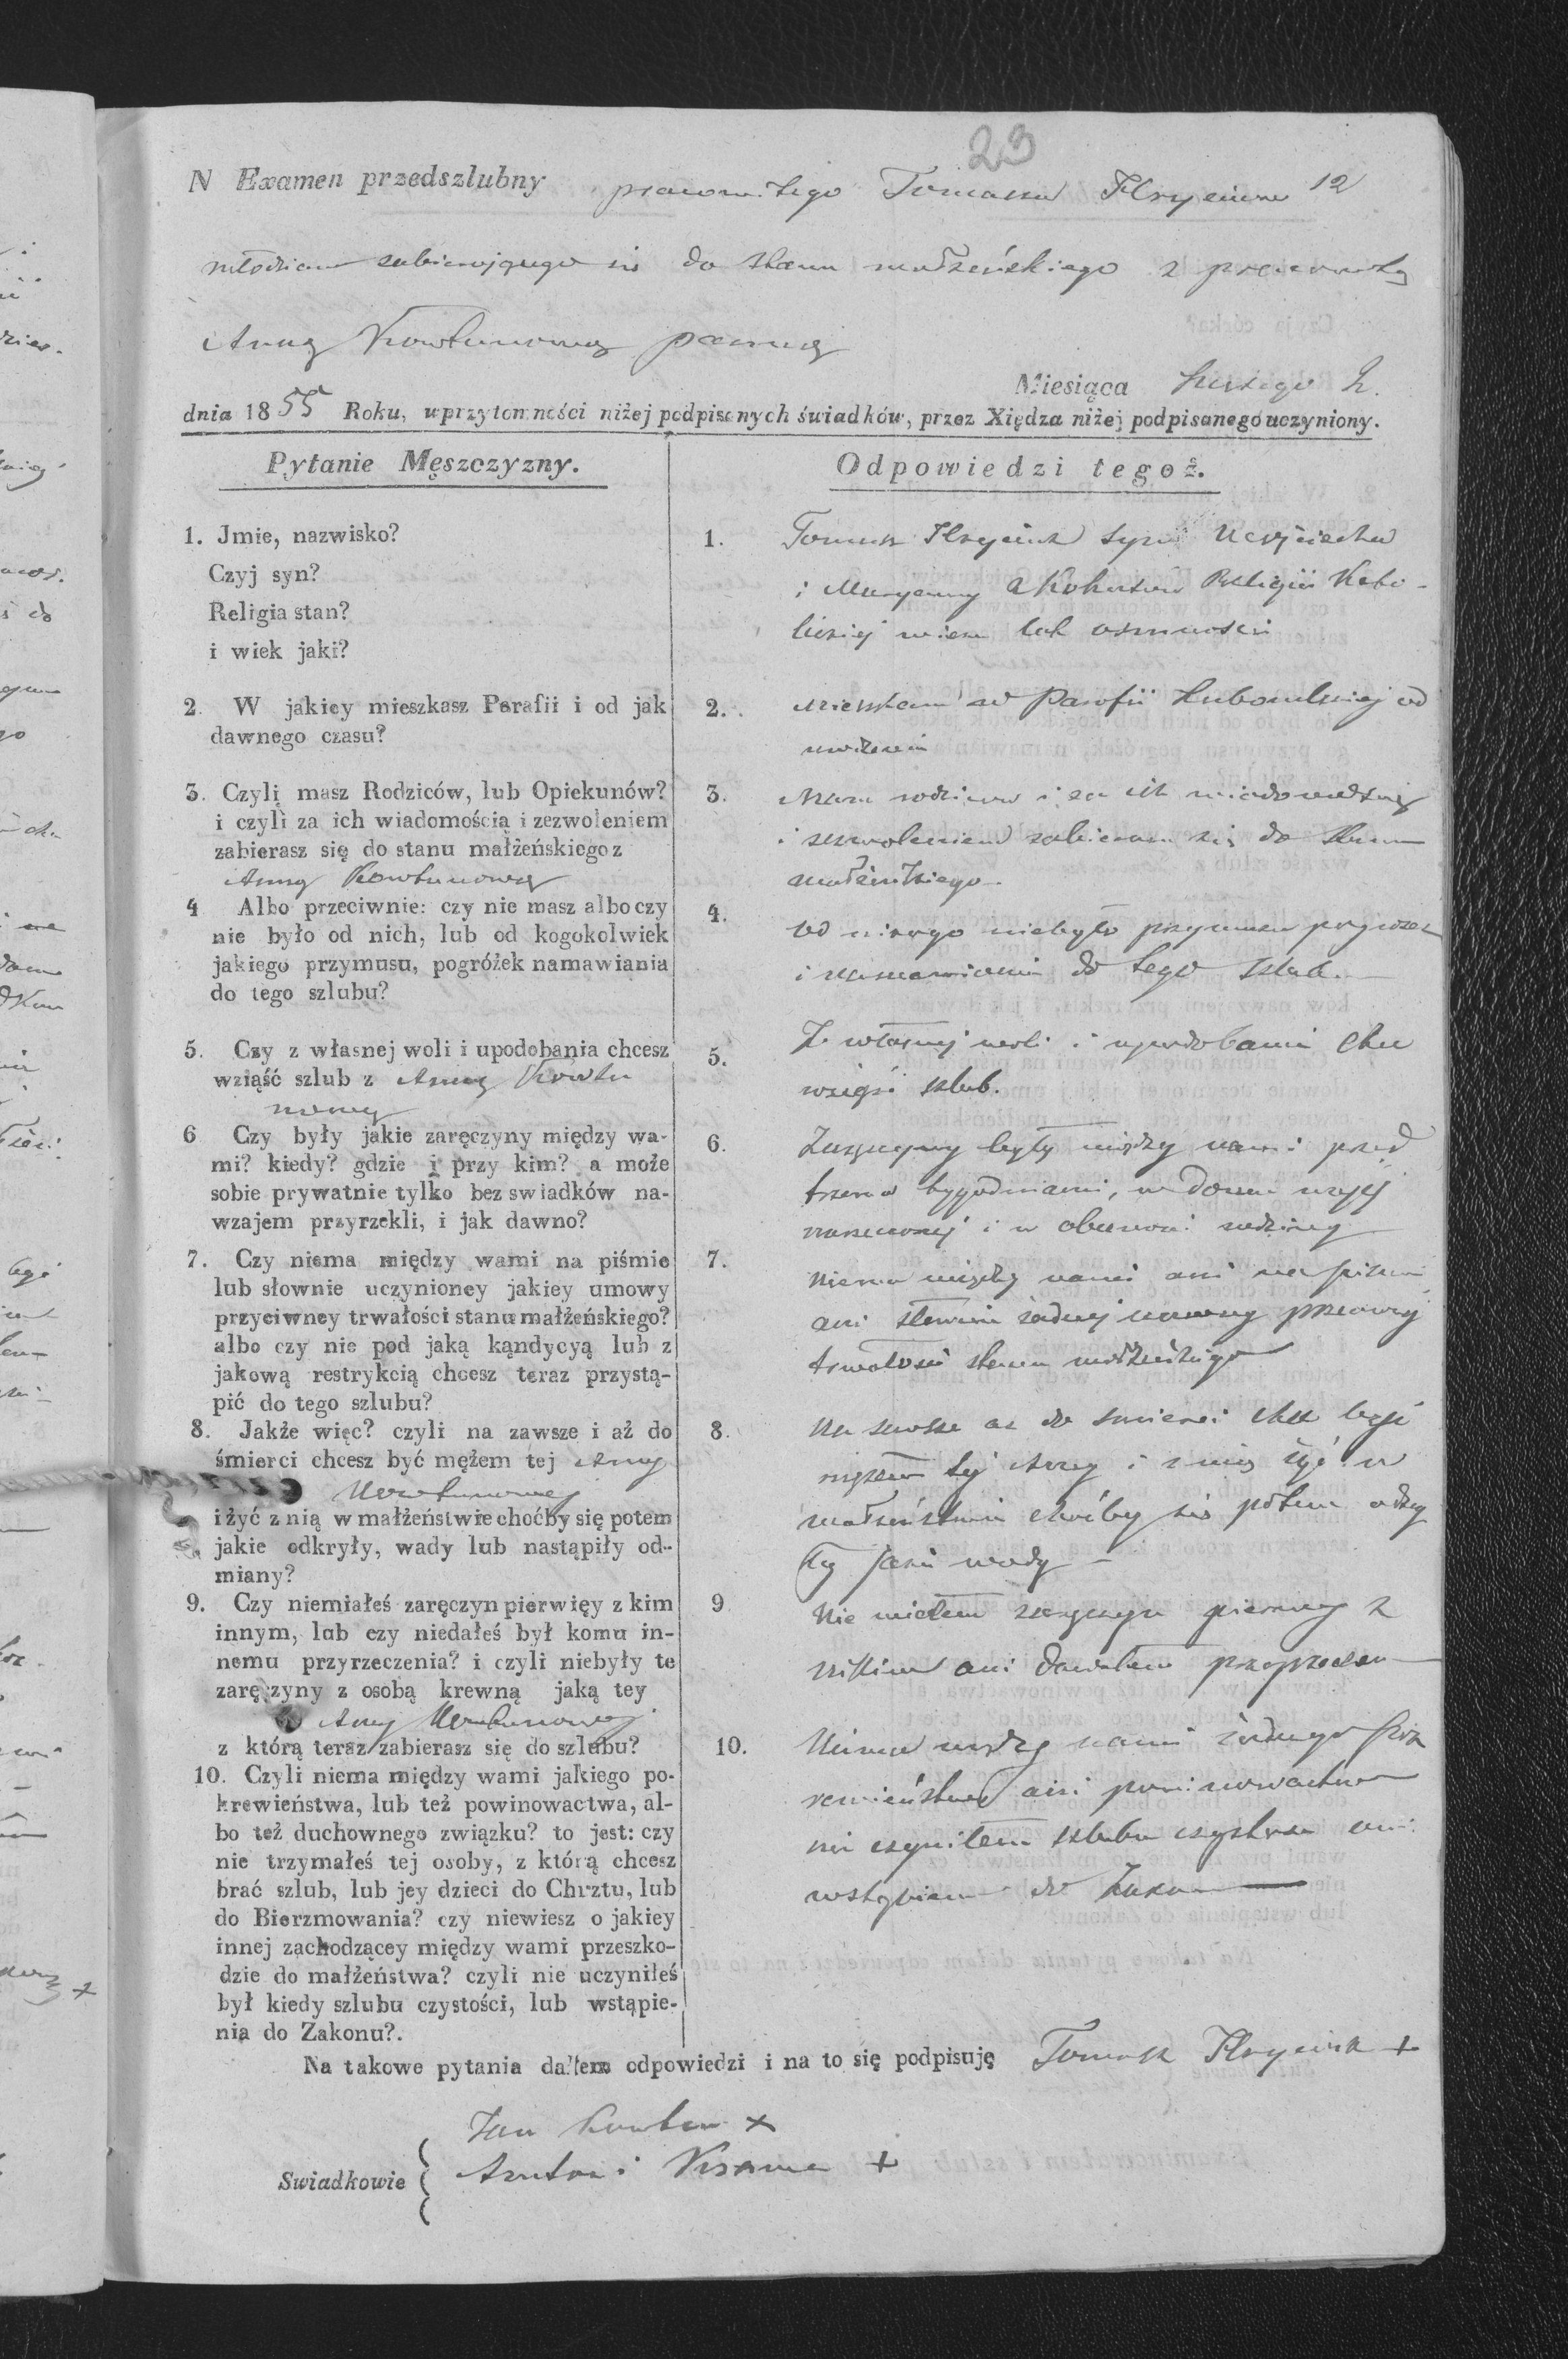 23
N Examen przedszlubny pracowitego Tomasza Hryciuka 12
młodziana zabierającego się do stanu małżeńskiego z pracowitą
Anną Kowtunowną panną
Miesiąca Lutego 2.
dnia 1855 Roku, w przytomności niżej podpisanych świadków, przez Xiędza niżej podpisanego uczyniony.
Pytanie Męszczyzny.
1. Jmie, nazwisko?
Czyj syn?
Religia stan?
i wiek jaki?
2. W jakiey mieszkasz Parafii i od jak
dawnego czasu?
3. Czyli masz Rodziców, lub Opiekunów?
i czyli za ich wiadomością i zezwoleniem
zabierasz się do stanu małżeńskiego z
Anną Kowtunowną
4 Albo przeciwnie: czy nie masz albo czy
nie było od nich, lub od kogokolwiek
jakiego przymusu, pogróżek namawiania
do tego szlubu?
5. Czy z własnej woli i upodobania chcesz
wziąść szlub z Anną Kowtu
nowną
6 Czy były jakie zaręczyny między wa-
mi? kiedy? gdzie i przy kim? a może
sobie prywatnie tylko bez swiadków na-
wzajem przyrzekli, i jak dawno?
7. Czy niema między wami na piśmie
lub słownie uczynioney jakiey umowy
przyciwney trwałości stanu małżeńskiego?
albo czy nie pod jaką kąndycyą lub z
jakową restrykcią chcesz teraz przystą-
pić do tego szlubu?
8. Jakże więc? czyli na zawsze i aż do
śmierci chcesz być mężem tej Anny
Kowtunowney
i żyć z nią w małżeństwie choćby się potem
jakie odkryły, wady lub nastąpiły od-
miany?
9. Czy niemiałeś zaręczyn pierwięy z kim
innym, lub czy niedałeś był komu in-
nemu przyrzeczenia? i czyli niebyły te
zaręczyny z osobą krewną jaką tey
Anny Kowtunowney
z którą teraz zabierasz się do szlubu?
10. Czyli niema między wami jakiego po-
krewieństwa, lub też powinowactwa, al-
bo też duchownego związku? to jest: czy
nie trzymałeś tej osoby, z którą chcesz
brać szlub, lub jey dzieci do Chrztu, lub
do Bierzmowania? czy niewiesz o jakiey
innej zachodzącey między wami przeszko-
dzie do małżeństwa? czyli nie uczyniłeś
był kiedy szlubu czystości, lub wstąpie-
nia do Zakonu?.
Odpowiedzi tegoż.
1. Tomasz Hryciuk syn Wojciecha
i Maryanny Religii Kato-
lickiej
2. Mieszkam w Parafii Lubomlskiej od
urodzenia
3. Mam rodziców i za ich wiadomością
i zezwoleniem zabieram się do stanu
małżeńskiego
4. Od nikogo niebyło przymusu pogrożek
i namawiania do tego szlubu.
5. Z własnej woli i upodobania chcę
wziąść szlub.
6. Zaręczyny były między nami przed
trzema tygodniami, w domu mojej
narzeczonej i w obecności rodziny
7. Niema między nami ani na piśmie
ani słownie żadnej umowy przeciwnej
trwałości stanu małżeńskiego
8. Na zawsze aż do śmierci chcę być
mężem tej Anny i z nią żyć w
małżeństwie choćby się potem odkry
ły jakie wady
9 Nie miałem zaręczyn pierwiej z
nikim ani dawałem przyrzeczen
10. Niema między nami żadnego pok
rewieństwa ani powinowactwa
nie czyniłem szlubu czystości ani
wstąpienia do Zakonu
Na takowe pytania dałem odpowiedzi i na to się podpisuję Tomasz Hryciuk +
Jan Kowtun +
Swiadkowie
Antoni +